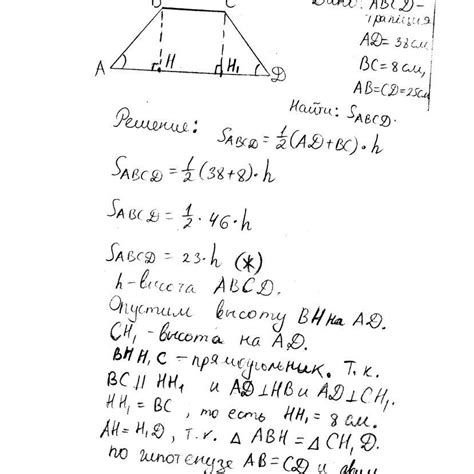 B C
A H H₁ D
Дано: ABCD-
трапеция
AD = 38 см
BC = 8 см,
AB=CD=25см
Найти: S_ABCD.
Решение: S_ABCD = 1/2 (AD+BC)·h
S_ABCD = 1/2 (38+8)·h
S_ABCD = 1/2 · 46 · h
S_ABCD = 23·h (*)
h-высота ABCD.
Опустим высоту BH на AD.
CH₁ - высота на AD.
BHH₁C - прямоугольник. Т.к.
BC || HH₁ и AD⊥HB и AD⊥CH₁.
HH₁ = BC, то есть HH₁ = 8 см.
AH = H₁D, т.к. △ ABH = △ CH₁D.
по гипотенузе AB = CD и